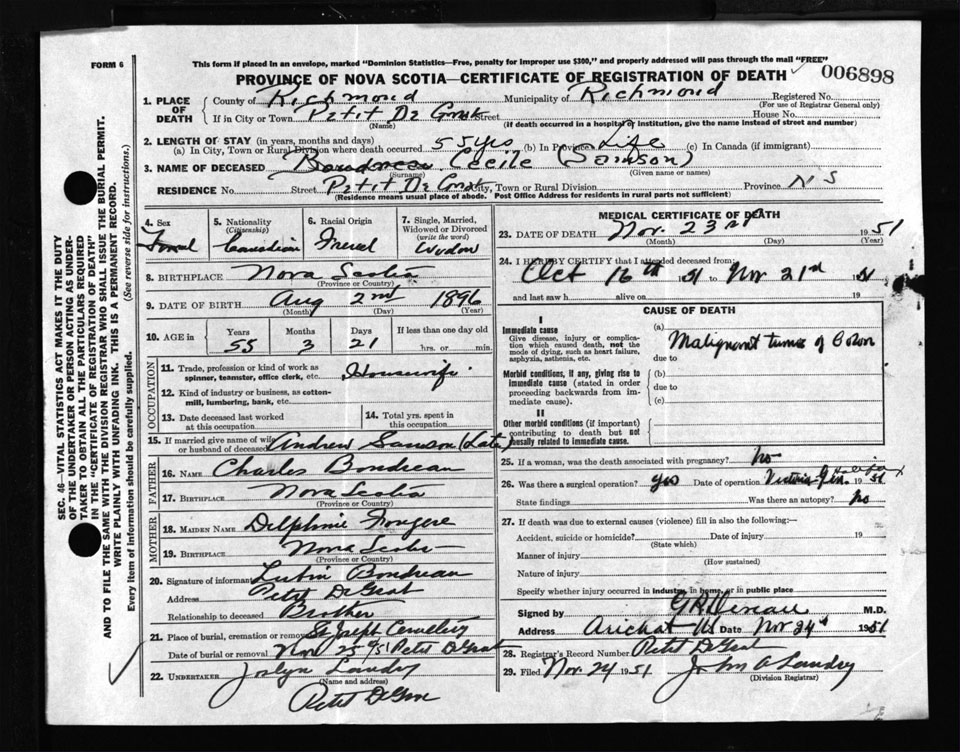 FORM 6
This form if placed in an envelope, marked "Dominion Statistics—Free, penalty for improper use $300," and properly addressed will pass through the mail "FREE"
PROVINCE OF NOVA SCOTIA—CERTIFICATE OF REGISTRATION OF DEATH
006898
SEC. 46—VITAL STATISTICS ACT MAKES IT THE DUTY
OF THE UNDERTAKER OR PERSON ACTING AS UNDER-
TAKER TO OBTAIN ALL THE PARTICULARS REQUIRED
IN THE "CERTIFICATE OF REGISTRATION OF DEATH"
AND TO FILE THE SAME WITH THE DIVISION REGISTRAR WHO SHALL ISSUE THE BURIAL PERMIT.
WRITE PLAINLY WITH UNFADING INK. THIS IS A PERMANENT RECORD.
Every item of information should be carefully supplied. (See reverse side for instructions.)
1. PLACE OF DEATH County of Richmond Municipality of Richmond Registered No.
(For use of Registrar General only)
If in City or Town Petit De Grat Street House No.
(Name) (If death occurred in a hospital or institution, give the name instead of street and number)
2. LENGTH OF STAY (in years, months and days)
(a) In City, Town or Rural Division where death occurred 55 yrs (b) In Province Life (c) In Canada (if immigrant)
3. NAME OF DECEASED Boudreau Cecile (Samson)
(Surname) (Given name or names)
RESIDENCE No. Street Petit De Grat City, Town or Rural Division Province N S
(Residence means usual place of abode. Post Office Address for residents in rural parts not sufficient)
4. Sex
Femal
5. Nationality
(Citizenship)
Canadian
6. Racial Origin
French
7. Single, Married,
Widowed or Divorced
(write the word)
Widow
8. BIRTHPLACE Nova Scotia
(Province or Country)
9. DATE OF BIRTH Aug 2nd 1896
(Month) (Day) (Year)
10. AGE in Years Months Days If less than one day old
55 3 21 hrs. or min.
OCCUPATION
11. Trade, profession or kind of work as
spinner, teamster, office clerk, etc. Housewife
12. Kind of industry or business, as cotton-
mill, lumbering, bank, etc.
13. Date deceased last worked
at this occupation
14. Total yrs. spent in
this occupation
15. If married give name of wife
or husband of deceased Andrew Samson (Late)
FATHER
16. NAME Charles Boudreau
17. BIRTHPLACE Nova Scotia
(Province or Country)
MOTHER
18. MAIDEN NAME Delphine Fougere
19. BIRTHPLACE Nova Scotia
(Province or Country)
20. Signature of informant Lubin Boudreau
Address Petit De Grat
Relationship to deceased Brother
21. Place of burial, cremation or removal St Joseph Cemetery
Date of burial or removal Nov 25 th/51 Petit De Grat
22. UNDERTAKER Joslyn Landry
(Name and address)
Petit De Grat
MEDICAL CERTIFICATE OF DEATH
23. DATE OF DEATH Nov. 23rd 1951
(Month) (Day) (Year)
24. I HEREBY CERTIFY that I attended deceased from:
Oct 16th 51 to Nov 21st 1951
and last saw h alive on 19
CAUSE OF DEATH
I
Immediate cause
Give disease, injury or complica-
tion which caused death, not the
mode of dying, such as heart failure,
asphyxia, asthenia, etc.
(a)
Malignant tumor of Colon
due to
Morbid conditions, if any, giving rise to
immediate cause (stated in order
proceeding backwards from im-
mediate cause).
(b)
due to
(c)
II
Other morbid conditions (if important)
contributing to death but not
causally related to immediate cause.
25. If a woman, was the death associated with pregnancy? No
26. Was there a surgical operation? yes Date of operation Victoria Gen. Halifax 1951
State findings Was there an autopsy? No
27. If death was due to external causes (violence) fill in also the following:—
Accident, suicide or homicide? Date of injury 19
(State which)
Manner of injury
(How sustained)
Nature of injury
Specify whether injury occurred in industry, in home, or in public place
Signed by M.D.
Address Arichat NS Date Nov 24th 1951
28. Registrar's Record Number Petit De Grat
29. Filed Nov 24 1951 John A Landry
(Division Registrar)